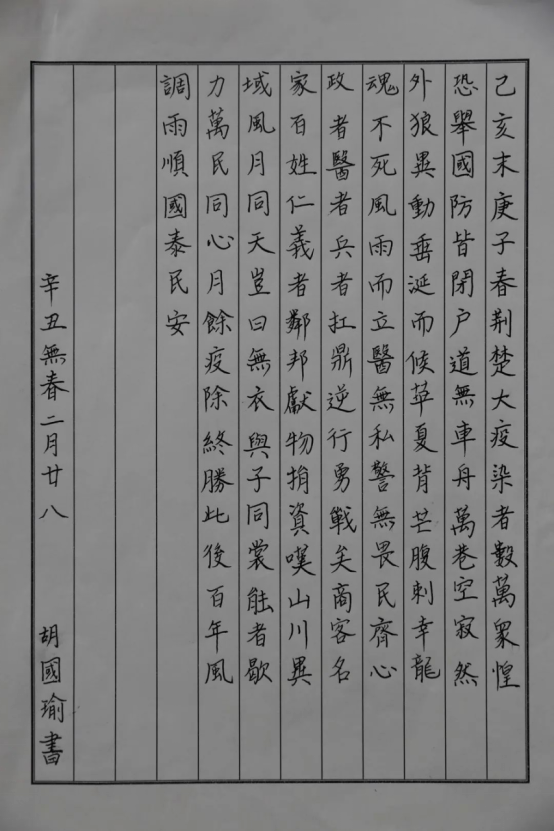 己亥末庚子春荆楚大疫染者數萬衆惶
恐舉國防皆閉户道無車舟萬巷空寂然
外狼異動垂涎而候華夏背芒腹刺幸龍
魂不死風雨而立醫無私警無畏民齊心
政者醫者兵者扛鼎逆行勇戰矣商客名
家百姓仁義者鄰邦獻物捐資嘆山川異
域風月同天豈曰無衣與子同裳能者歇
力萬民同心月餘疫除終勝此後百年風
調雨順國泰民安
辛丑無春二月廿八 胡國瑜書